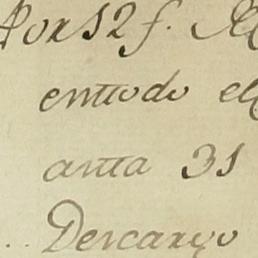 Por 12 f.
entrodo el
anta 31
Descargo